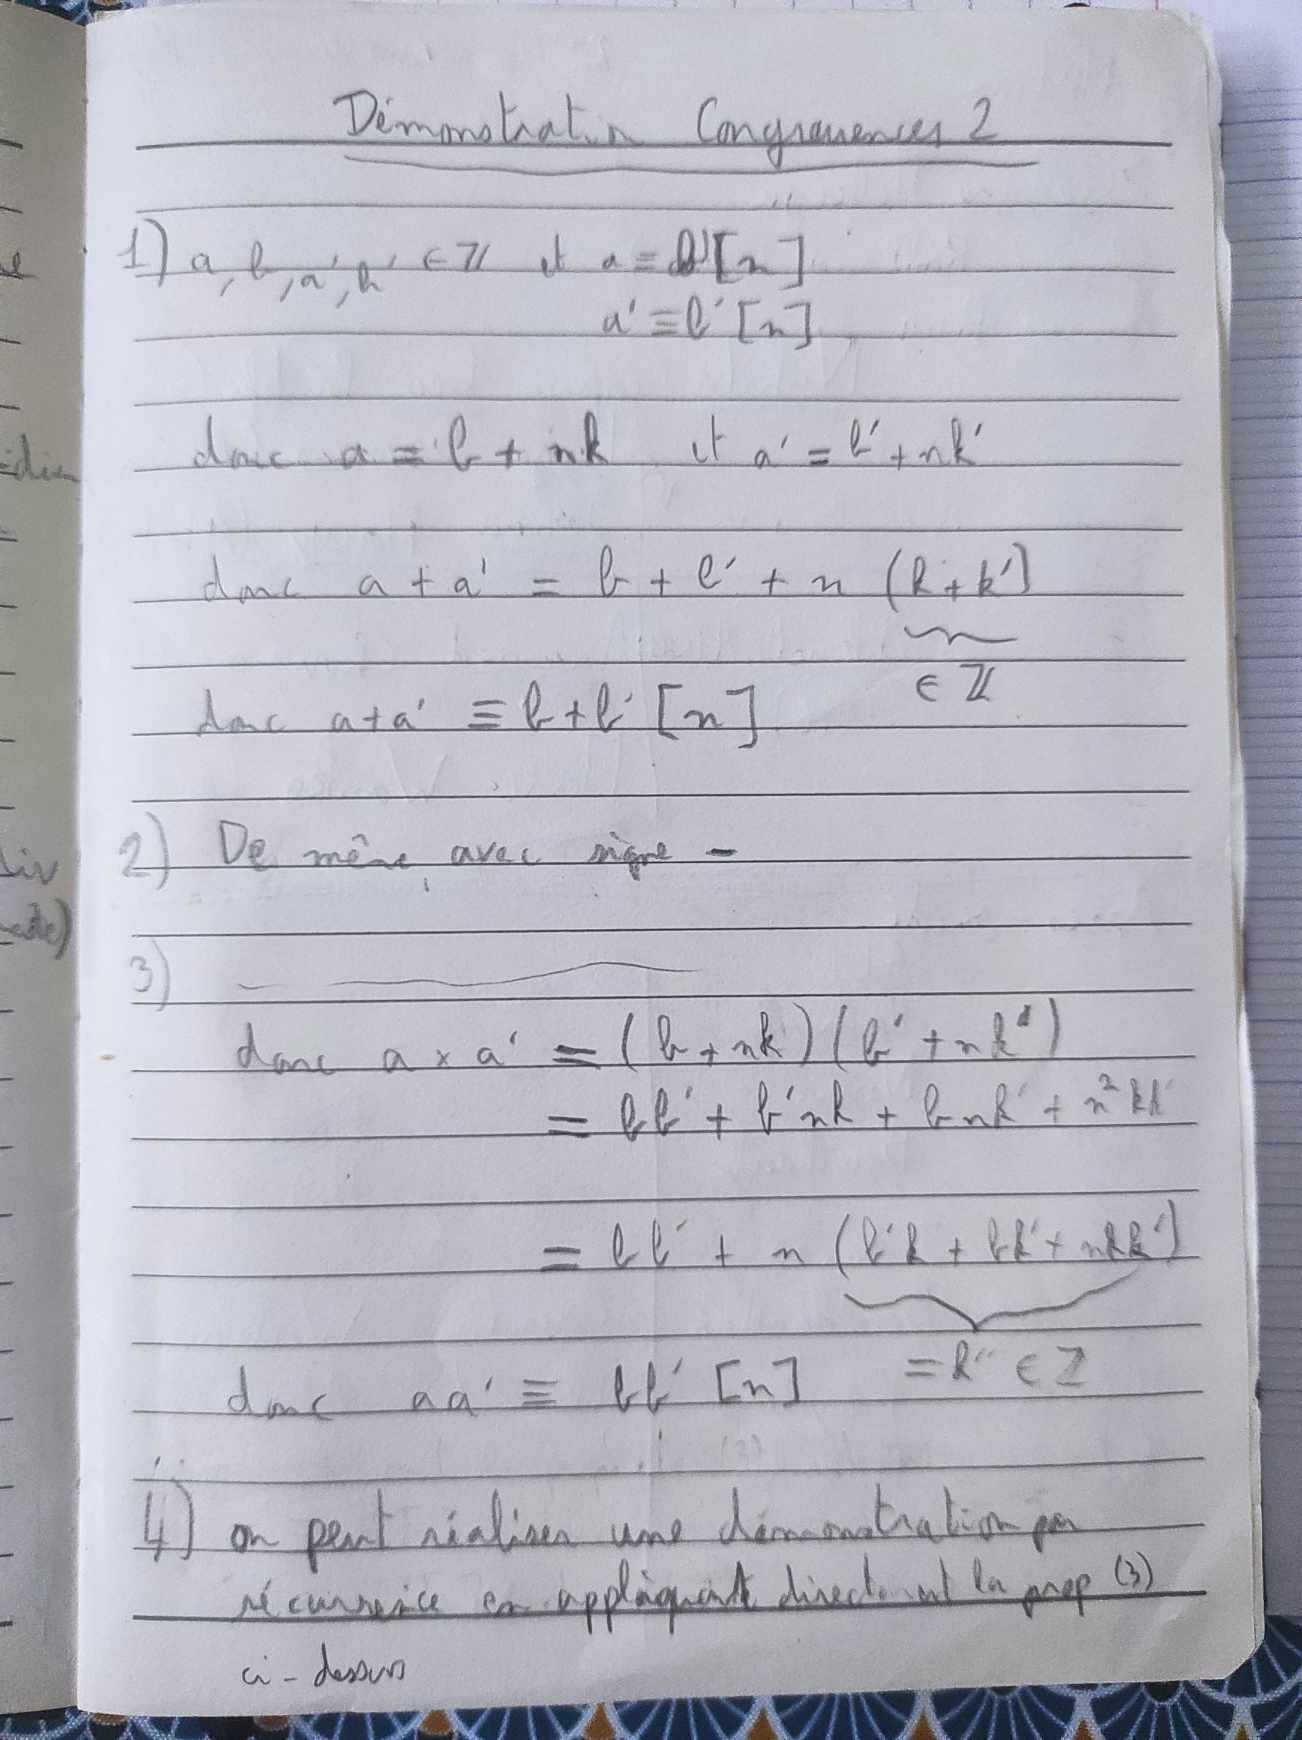 Démonstration Congruences 2
1) a, b, a', b' ∈ ℤ et a ≡ b [n]
a' ≡ b' [n]
donc a = b + nk et a' = b' + nk'
donc a + a' = b + b' + n (k + k')
∈ ℤ
donc a+a' ≡ b+b' [n]
2) De même avec signe -
3)
donc a × a' = (b + nk)(b' + nk')
= bb' + b'nk + bnk' + n²kk'
= bb' + n (b'k + bk' + nkk')
= k'' ∈ ℤ
donc aa' ≡ bb' [n]
4) on peut réaliser une démonstration par
récurrence en appliquant directement la prop (3)
ci-dessus